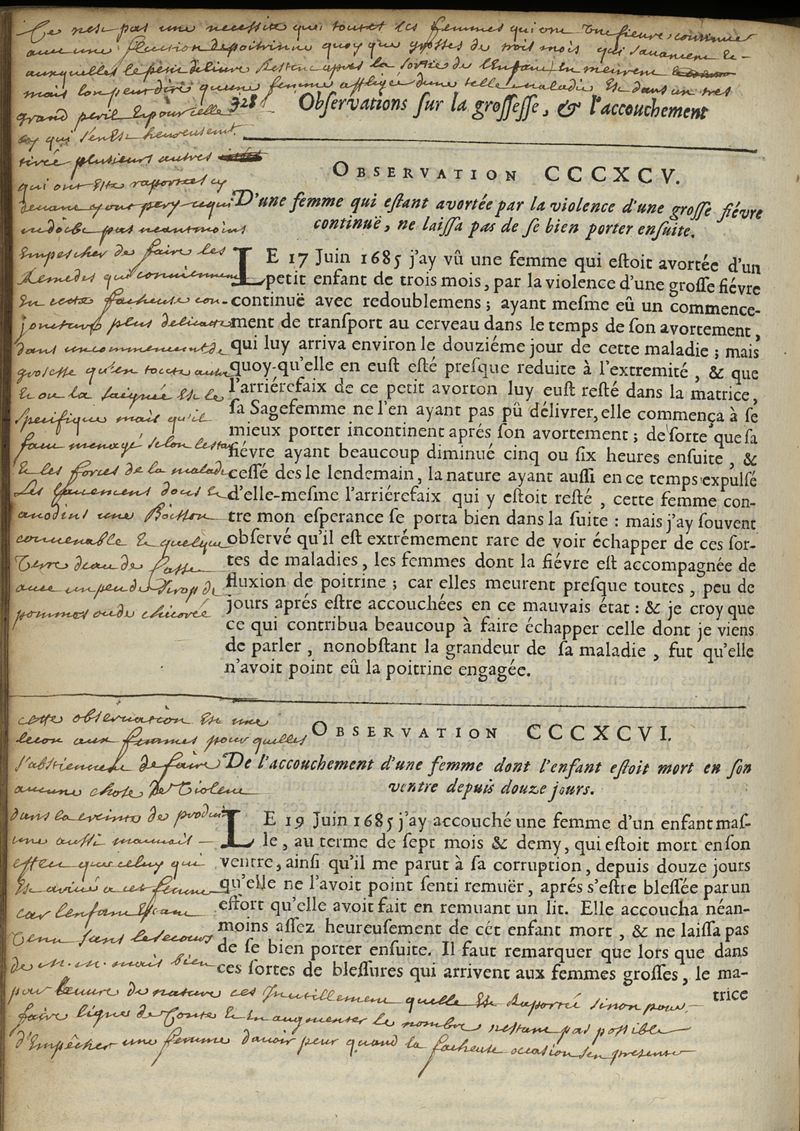 Ce nest pas une necessité que toutes les femmes qui ont une fievre continue
avec une fluction depoitrine quoy que grosses de trois mois qui
auxquelles le petit delivre Restent apres la sortie de l'Enfant En meurent
mais lon peut dire quune femme affligée dune telle maladie Est dans un tres
grand peril Et pour celle
cy qui s'en Est heureusemt
tirée plusieurs autres
qui ont Esté raportées cy
devant y ont pery ce qui
ne doibt pas neantmoins
Empescher de faire les
Remedes qui conviennent
En cette facheuse con-
joncture plus delicate
dans un commencement de
grosesse qu'en toutte autre
Et ou la saignée Est le
specifique mais qu'il
faut menagé selon lestat
Et les forces de la malade
Les lavemens doux Et
anodins une Boisson
convenable Et quelque
Terre deau de Casse
avec un peu de sirop de
pommes ou de chicorée
328 Observations sur la grossesse, & l'accouchement
OBSERVATION CCCXCV.
D'une femme qui estant avortée par la violence d'une grosse fiévre
continuë, ne laissa pas de se bien porter ensuite.
LE 17 Juin 1685 j'ay vû une femme qui estoit avortée d'un
petit enfant de trois mois, par la violence d'une grosse fiévre
continuë avec redoublemens ; ayant mesme eû un commence-
ment de transport au cerveau dans le temps de son avortement,
qui luy arriva environ le douziéme jour de cette maladie ; mais
quoy-qu'elle en eust esté presque reduite à l'extremité, & que
l'arriérefaix de ce petit avorton luy eust resté dans la matrice,
sa Sagefemme ne l'en ayant pas pû délivrer, elle commença à se
mieux porter incontinent aprés son avortement ; de sorte que sa
fiévre ayant beaucoup diminué cinq ou six heures ensuite, &
cessé des le lendemain, la nature ayant aussi en ce temps expulsé
d'elle-mesme l'arriérefaix qui y estoit resté, cette femme con-
tre mon esperance se porta bien dans la suite : mais j'ay souvent
observé qu'il est extrémement rare de voir échapper de ces sor-
tes de maladies, les femmes dont la fiévre est accompagnée de
fluxion de poitrine ; car elles meurent presque toutes, peu de
jours aprés estre accouchées en ce mauvais état : & je croy que
ce qui contribua beaucoup à faire échapper celle dont je viens
de parler, nonobstant la grandeur de sa maladie, fut qu'elle
n'avoit point eû la poitrine engagée.
OBSERVATION CCCXCVI.
De l'accouchement d'une femme dont l'enfant estoit mort en son
ventre depuis douze jours.
LE 19 Juin 1685 j'ay accouché une femme d'un enfant mas-
le, au terme de sept mois & demy, qui estoit mort en son
ventre, ainsi qu'il me parut à sa corruption, depuis douze jours
qu'elle ne l'avoit point senti remuër, aprés s'estre blessée par un
effort qu'elle avoit fait en remuant un lit. Elle accoucha néan-
moins assez heureusement de cét enfant mort, & ne laissa pas
de se bien porter ensuite. Il faut remarquer que lors que dans
ces sortes de blessures qui arrivent aux femmes grosses, le ma-
trice
cette observation Est une
lecon aux femmes pour quelles
s'abstiennent de faire
aucune chose de Violent
dans la creinte de produire
une aussi mauvais
effect que celuy qui
Est arivé a cet femme
car lenfant Etant
Venu sans le secours
de m. m. mais bien
par l'œuvre de nature ces Inutillement quelle Est Raporté sinon pour
faire ligne de Conte Et En augmenter le nombre nestant pas possible
d'Empêcher une femme davoir peur quand la facheuse occasion sen presente